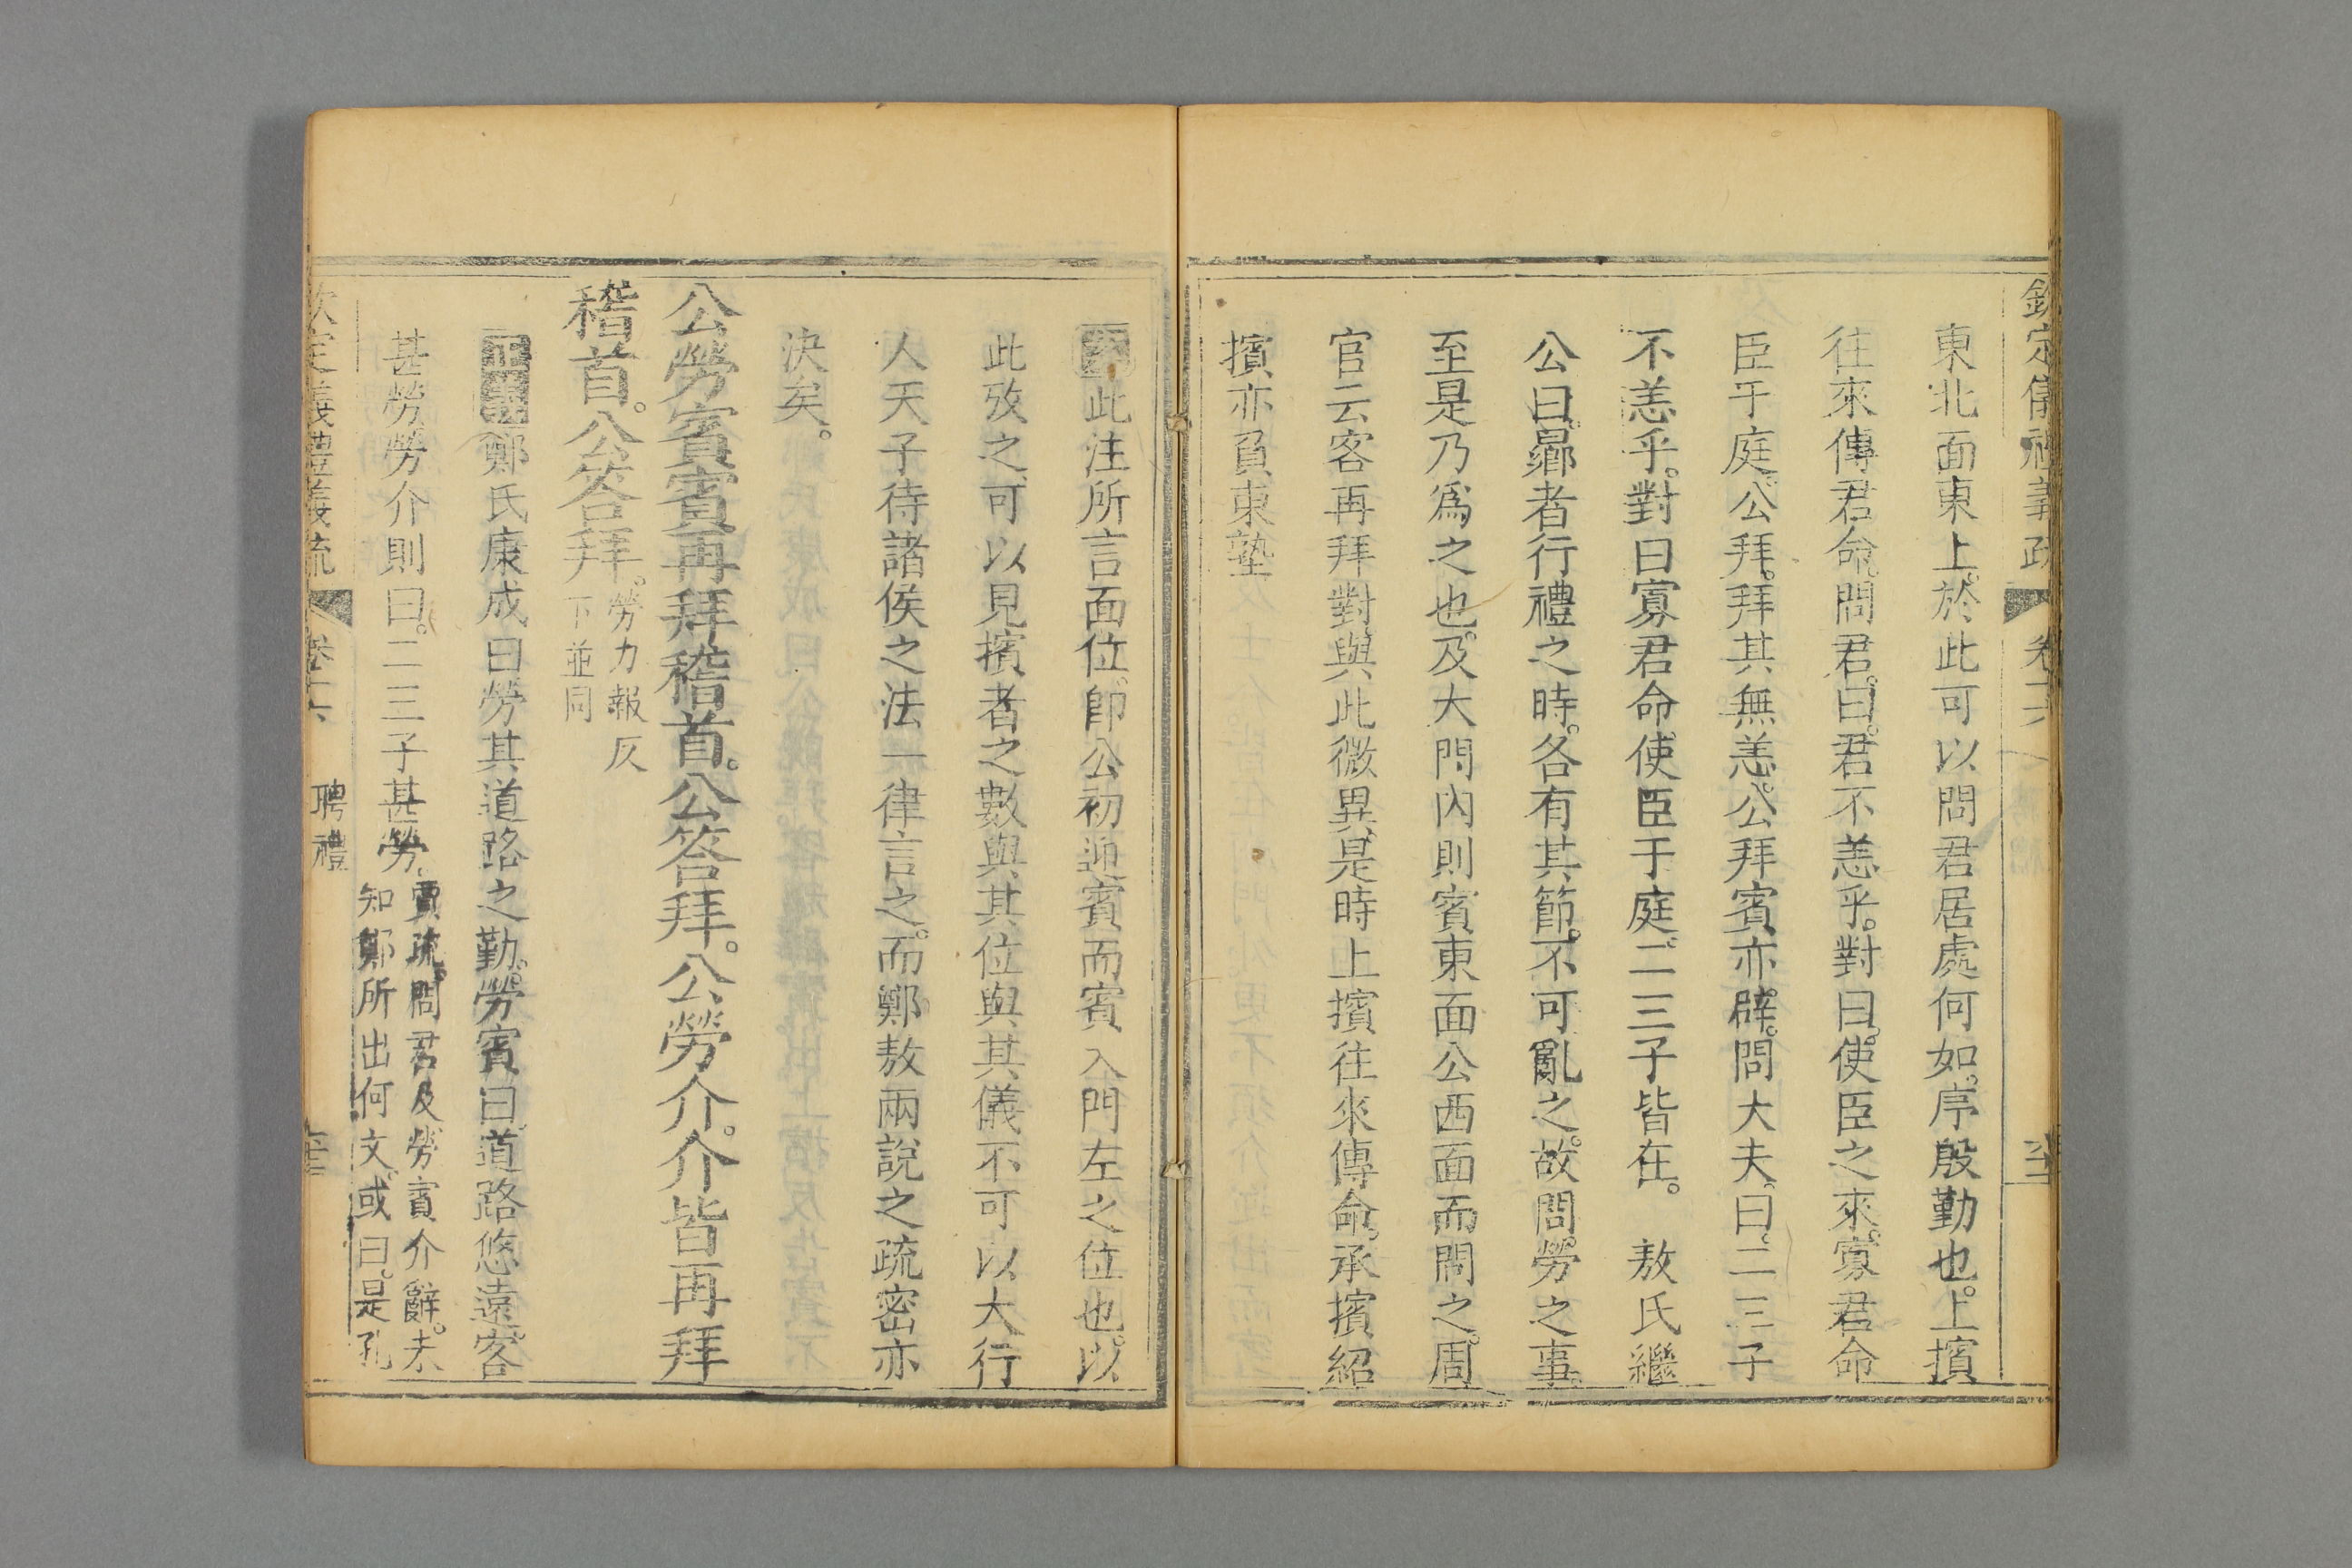 欽定儀禮義疏 卷十六
東北面東上。於此可以問君居處何如。序殷勤也。上擯
往來傳君命。問君。曰。君不恙乎。對曰。使臣之來。寡君命
臣于庭。公拜。拜其無恙。公拜賓亦辟。問大夫。曰。二三子
不恙乎。對曰寡君命使臣于庭。二三子皆在。 敖氏繼
公曰。曏者行禮之時。各有其節。不可亂之。故問勞之事
至是乃爲之也。及大門內則賓東面公西面而問之。周
官云客再拜對與此微異。是時上擯往來傳命。承擯紹
擯亦負東塾
此注所言面位。卽公初迎賓而賓入門左之位也。以
此攷之。可以見擯者之數與其位與其儀不可以大行
人天子待諸侯之法一律言之。而鄭敖兩說之疏密亦
決矣。
公勞賓賓再拜稽首。公答拜。公勞介。介皆再拜
稽首。公答拜。勞力報反
下並同
正義鄭氏康成曰勞其道路之勤。勞賓曰。道路悠遠。客
甚勞勞介則曰。二三子甚勞。賈疏。問君及勞賓介辭。未
知鄭所出何文。或曰。是孔
欽定儀禮義疏 卷十六 聘禮